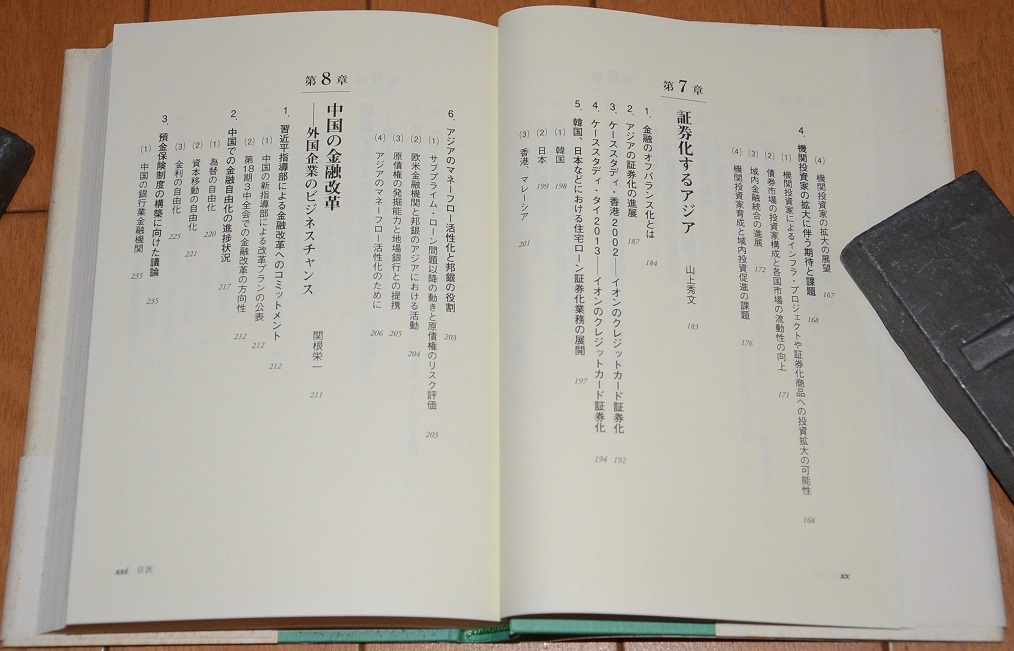 (4) 機関投資家の拡大の展望 167
4. 機関投資家の拡大に伴う期待と課題 168
(1) 機関投資家によるインフラ・プロジェクトや証券化商品への投資拡大の可能性 168
(2) 債券市場の投資家構成と各国市場の流動性の向上 171
(3) 域内金融統合の進展 172
(4) 機関投資家育成と域内投資促進の課題 176
第7章 証券化するアジア 山上秀文 183
1. 金融のオフバランス化とは 184
2. アジアの証券化の進展 187
3. ケーススタディ・香港2002――イオンのクレジットカード証券化 192
4. ケーススタディ・タイ2013――イオンのクレジットカード証券化 194
5. 韓国、日本などにおける住宅ローン証券化業務の展開 197
(1) 韓国 198
(2) 日本 199
(3) 香港、マレーシア 201
xx
6. アジアのマネーフロー活性化と邦銀の役割 203
(1) サブプライム・ローン問題以降の動きと原債権のリスク評価 203
(2) 欧米金融機関と邦銀のアジアにおける活動 204
(3) 原債権の発掘能力と地場銀行との提携 205
(4) アジアのマネーフロー活性化のために 206
第8章 中国の金融改革
――外国企業のビジネスチャンス 関根栄一 211
1. 習近平指導部による金融改革へのコミットメント 212
(1) 中国の新指導部による改革プランの公表 212
(2) 第18期3中全会での金融改革の方向性 212
2. 中国での金融自由化の進捗状況 217
(1) 為替の自由化 220
(2) 資本移動の自由化 221
(3) 金利の自由化 225
3. 預金保険制度の構築に向けた議論 235
(1) 中国の銀行業金融機関 235
xxi 目次